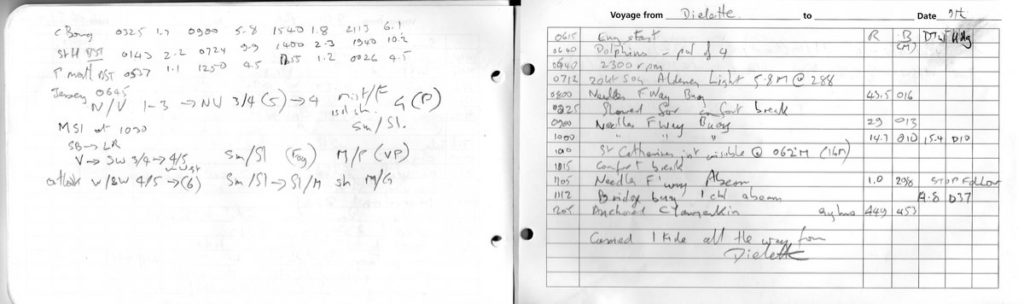 C Bourg 0325 1.7 0900 5.8 1540 1.8 2113 6.1
St H BST 0143 2.2 0724 9.9 1400 2.3 1940 10.2
P matt BST 0537 1.1 1250 4.5 1.2 0026 4.5
Jersey 0645
N/V 1-3 → NV 3/4 (5) → 4 mist/F G (P)
isol sh. Sm/Sl.
MSI at 1030
SB → LR
V → SW 3/4 → 4/5 Sm/Sl (Fog) M/P (VP)
W in W st
outlook V/SW 4/5 → (6) Sm/Sl → Sl/M sh M/G
Voyage from Dielette to Date 9th
R B (M) DTW Hdg
0615 Eng start
0640 Dolphins - pod of 4
0640 2300 rpm
0712 204t Soy Alderney Light 5.8M @ 288
0800 Needles F Way Buoy 43.5 016
0825 Slowed for comfort break
0900 Needles F Way Buoy 29 013
1000 " " " 14.7 010 15.4 D10
St Catherines just visible @ 062°M (16M)
1015 Comfort break
1105 Needles F'way Abeam 1.0 298 STOP Follow
1112 Bridge buoy 1 cbl abeam 4.8 D37
1205 Anchored eng hrs 449 453
Carried 1 tide all the way from
Dielette